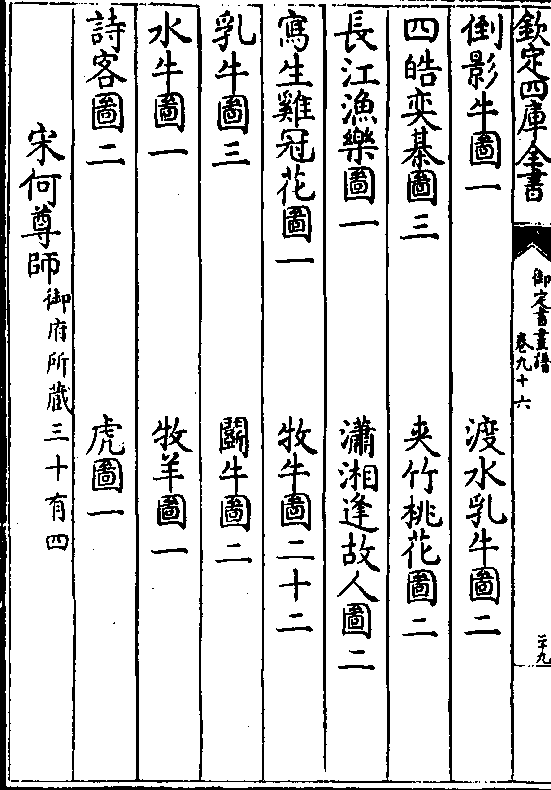 欽定四庫全書
御定書畫譜
卷九十六
二十九
倒影牛圖一　渡水乳牛圖二
四皓奕棊圖三　夾竹桃花圖二
長江漁樂圖一　瀟湘逢故人圖二
寫生雞冠花圖一　牧牛圖二十二
乳牛圖三　鬭牛圖二
水牛圖一　牧羊圖一
詩客圖二　虎圖一
宋何尊師御府所藏三十有四